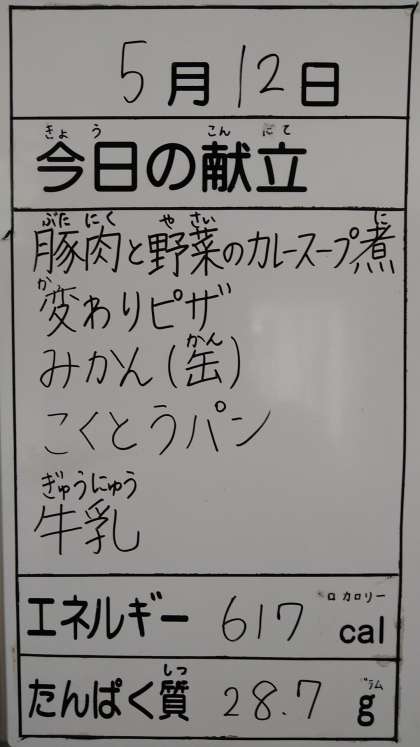 5月12日
きょう こんだて
今日の献立
ぶたにく やさい に
豚肉と野菜のカレースープ煮
か
変わりピザ
かん
みかん(缶)
こくとうパン
ぎゅうにゅう
牛乳
ロカロリー
エネルギー 617 cal
しつ グラム
たんぱく質 28.7 g